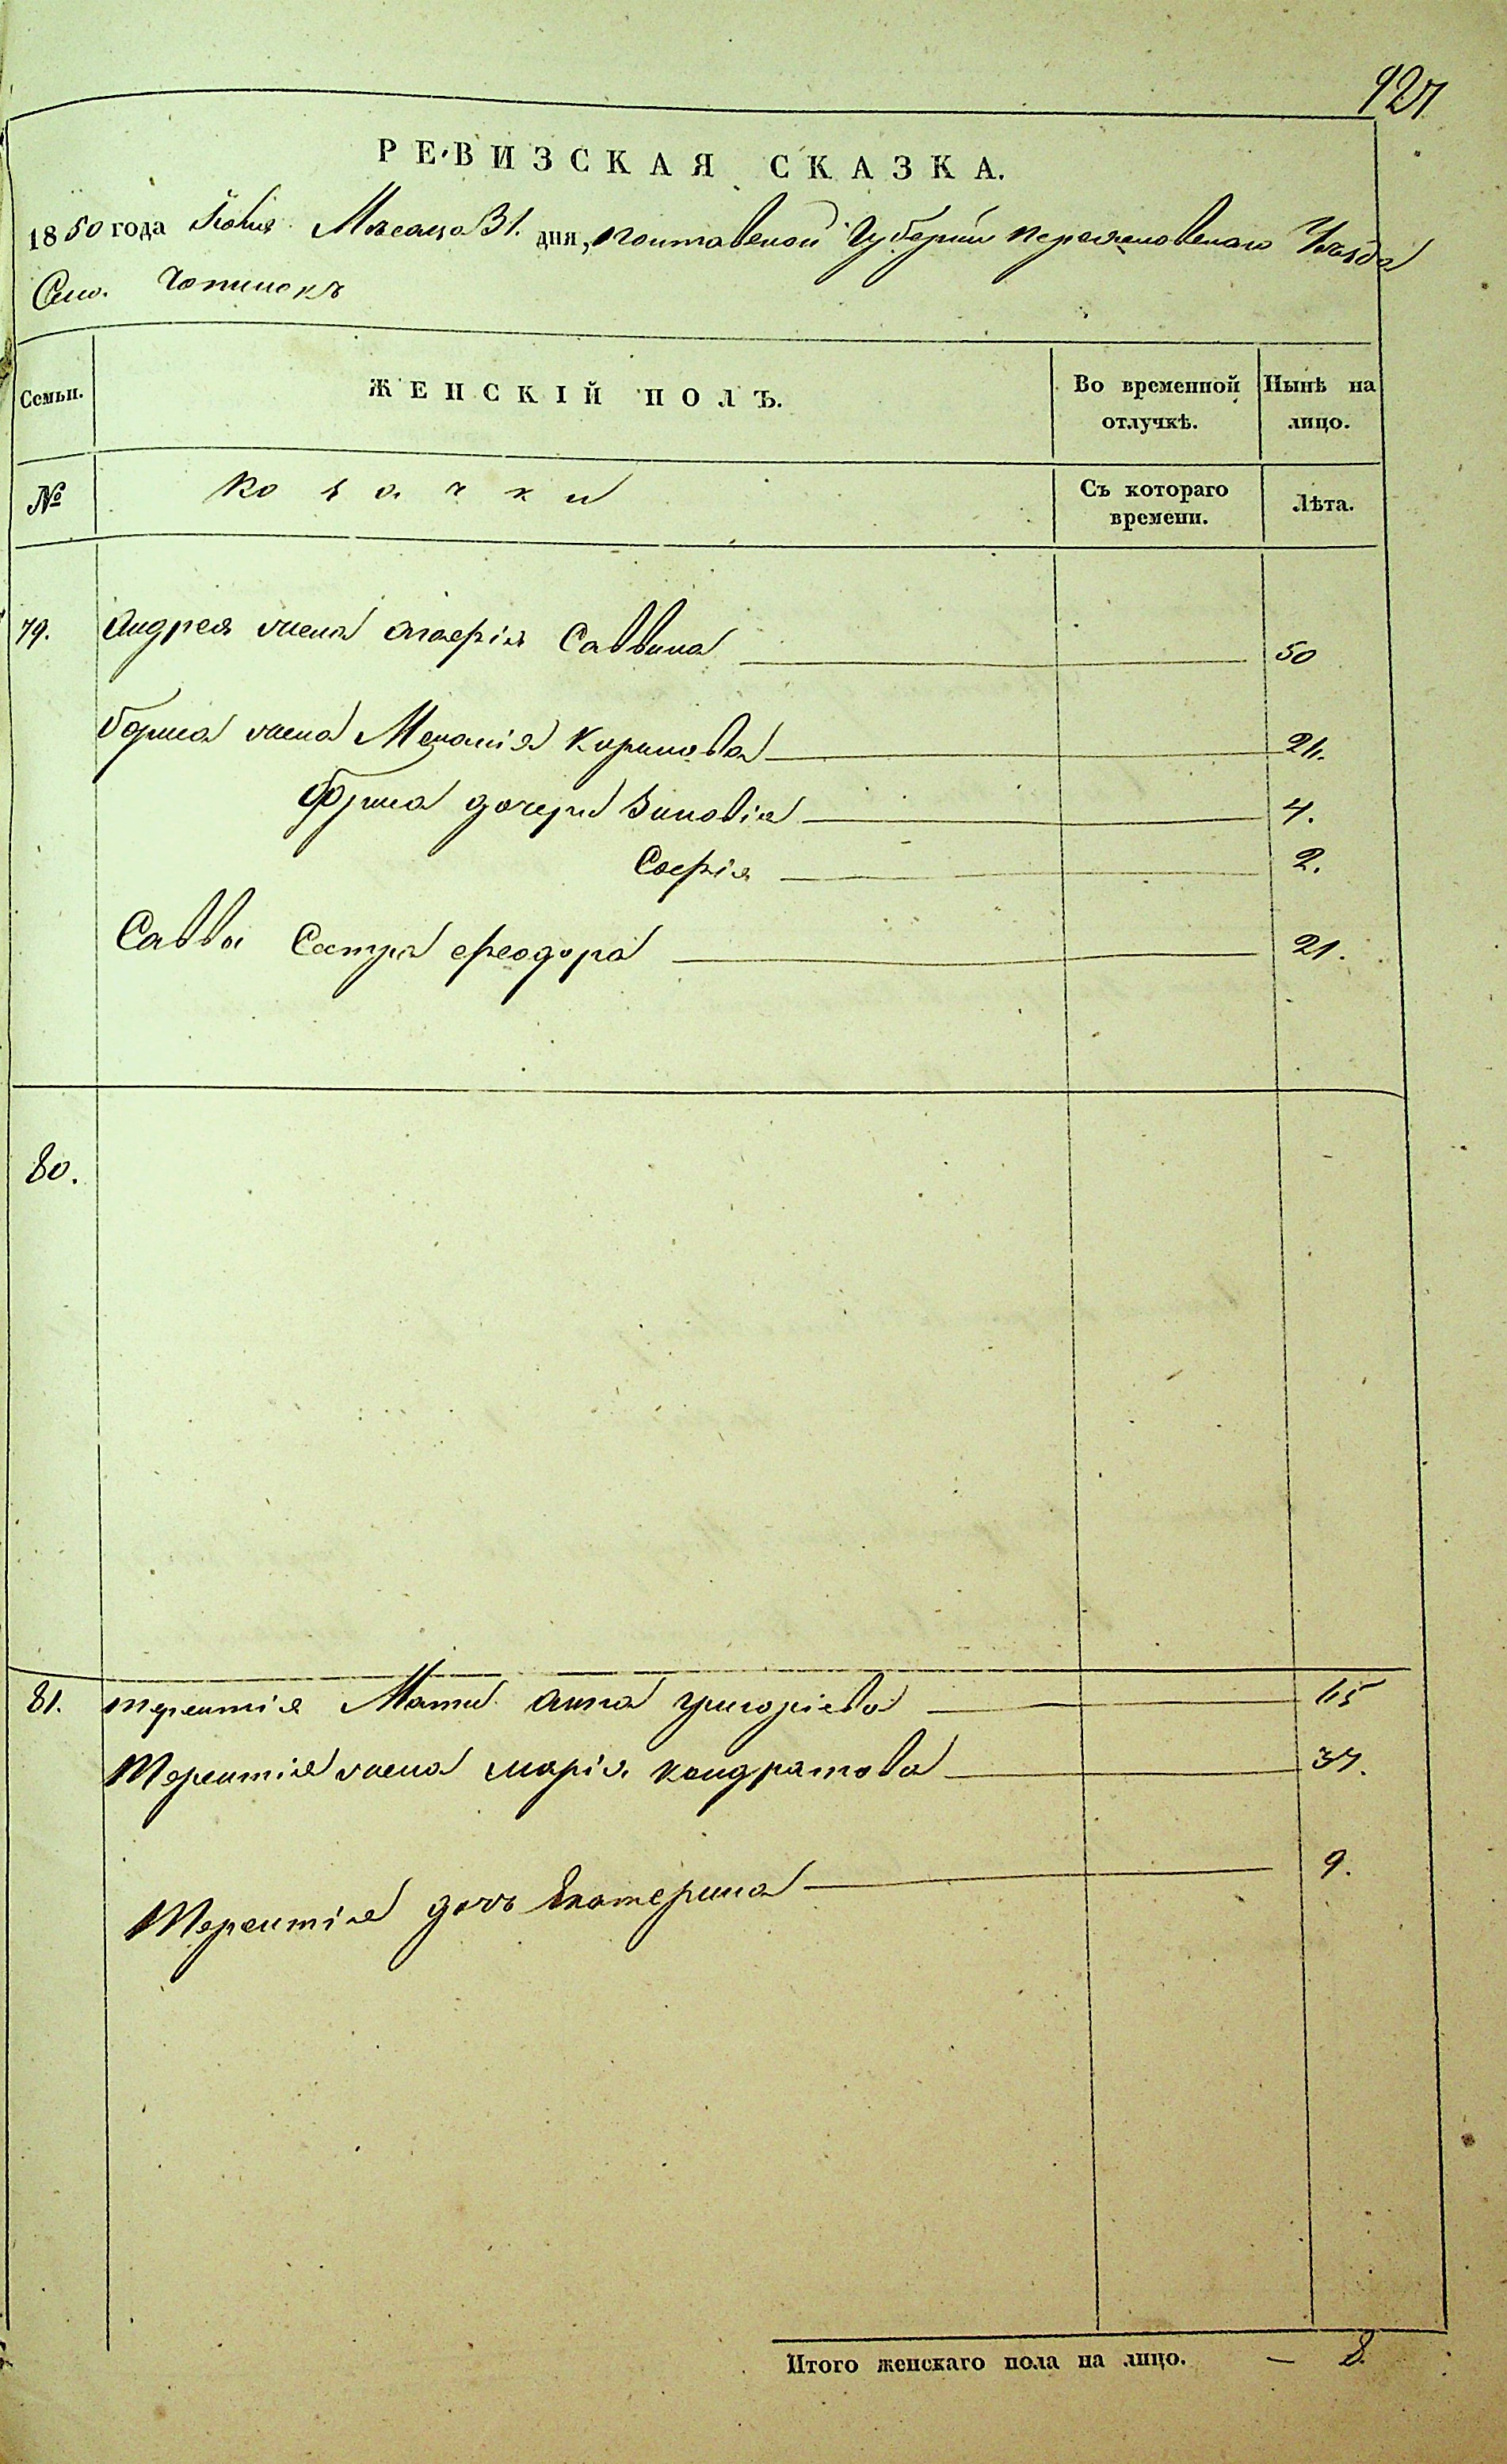 927
РЕВИЗСКАЯ СКАЗКА.
1850 года Іюля Мѣсяца 31. дня, Полтавской Губерніи Переяславскаго Уѣзда
Село
Семьи.
ЖЕНСКІЙ ПОЛЪ.
Во временной отлучкѣ.
Нынѣ на лицо.
№
Козачки
Съ котораго времени.
Лѣта.
79. Андрея жена Агафія Саввина 50
жена Меланія Кирилова
дочери Зиновія 4.
Софія 2.
Саввы Сестра Феодора 21.
80.
81. Терентія Мати Анна Григоріева
Терентія жена Марія Кондратова 37.
Терентія дочь Екатерина 9.
Итого женскаго пола на лицо. — 8.